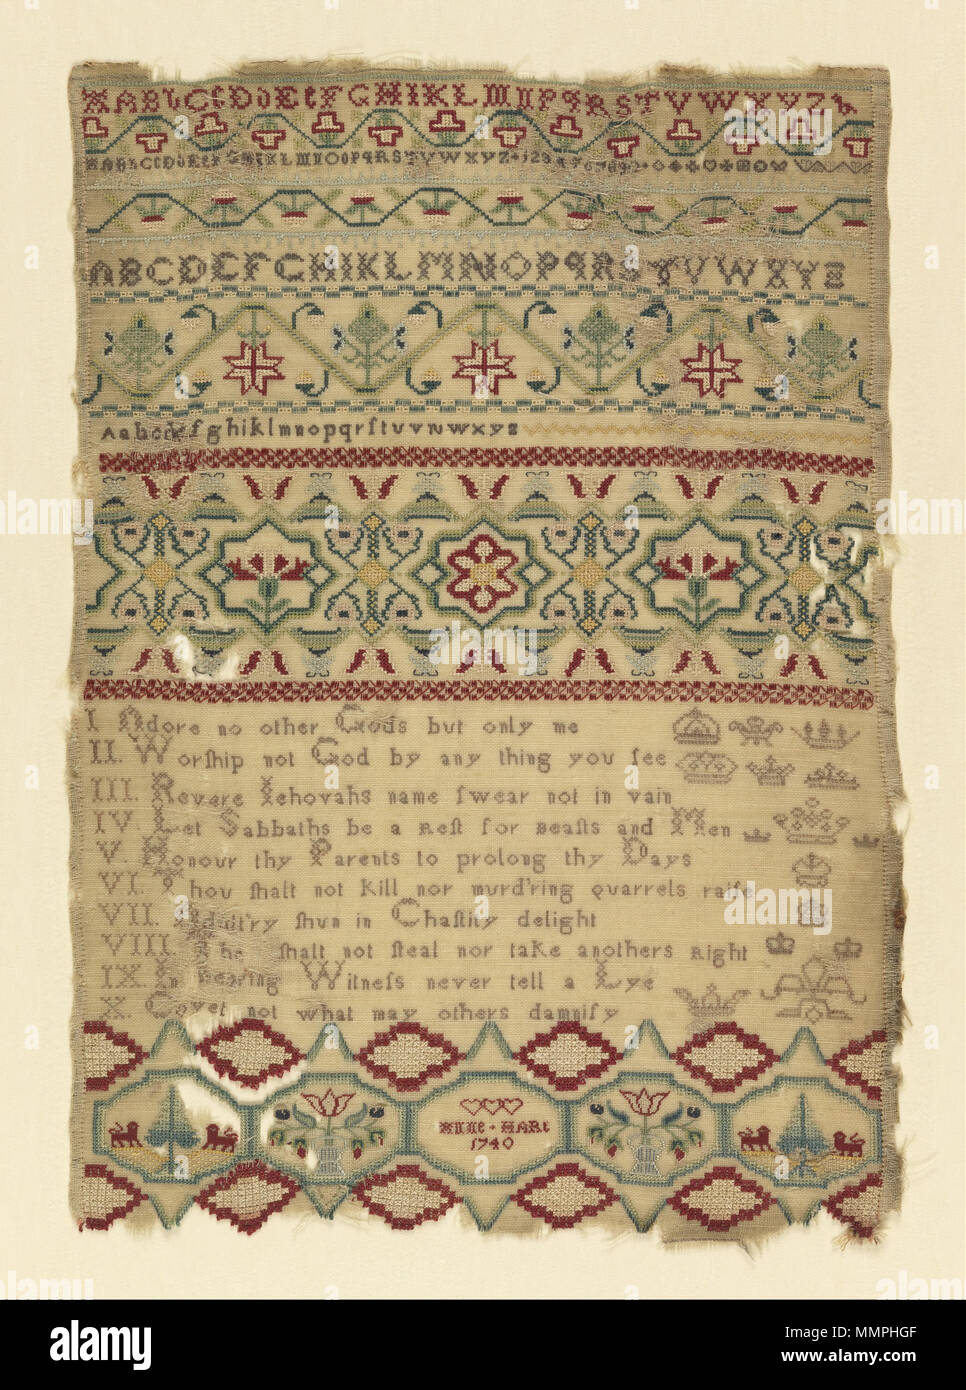 AABbCcDdEefGHIKLMNPqRSTVWXYZ
AABbCcDdEef GHIKLMNOPqRSTVWXYZ
ABCDEFGHIKLMNOPqRSTVWXYZ
Aabcdefghiklmnopqrſtuvwxyz
I Adore no other Gods but only me
II. Worſhip not God by any thing you ſee
III. Revere Iehovahs name ſwear not in vain
IV. Let Sabbaths be a Reſt for Beaſts and Men
V. Honour thy Parents to prolong thy Days
VI. Thou ſhalt not Kill nor murd'ring quarrels raiſe
VII. Adult'ry ſhun in Chaſtity delight
VIII. ſhalt not ſteal nor take anothers Right
IX. In bearing Witneſs never tell a Lye
X. Covet not what may others damnify
ANNE HART
1740
alamy
Image ID: MMPHGF
www.alamy.com